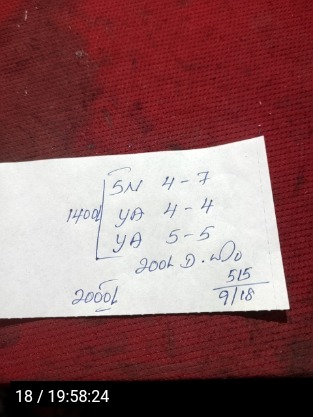 5N 4-7
1400l yA 4-4
yA 5-5
200L D.
2000l 515
9/18
18 / 19:58:24